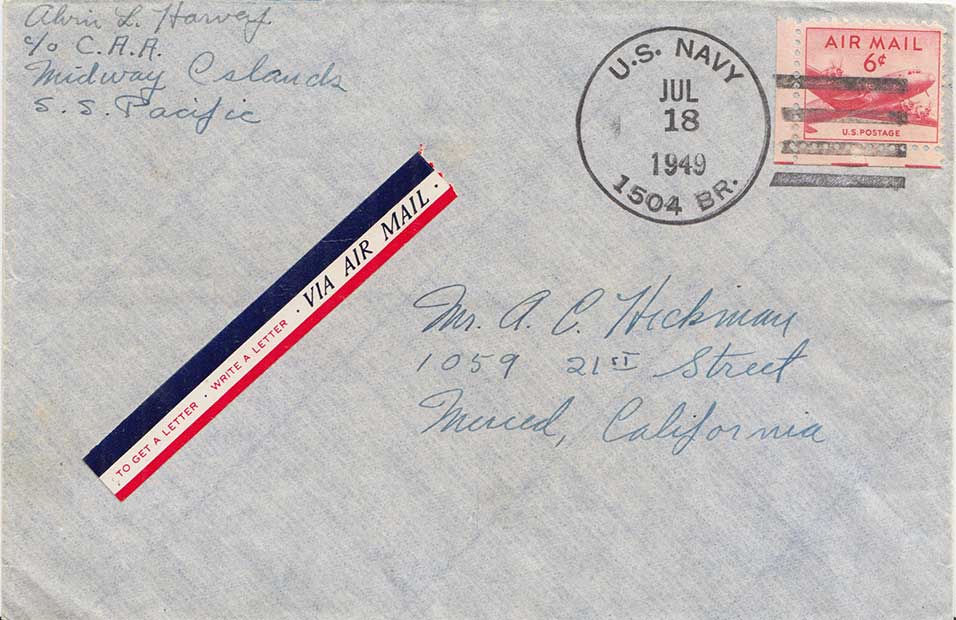 Alvin L. Harvey
c/o C.A.A.
Midway Islands
S. S. Pacific
U.S. NAVY
JUL
18
1949
1504 BR.
AIR MAIL
6¢
U.S. POSTAGE
TO GET A LETTER · WRITE A LETTER · VIA AIR MAIL ·
Mr. A. C. Hickman
1059 21ST Street
Merced, California